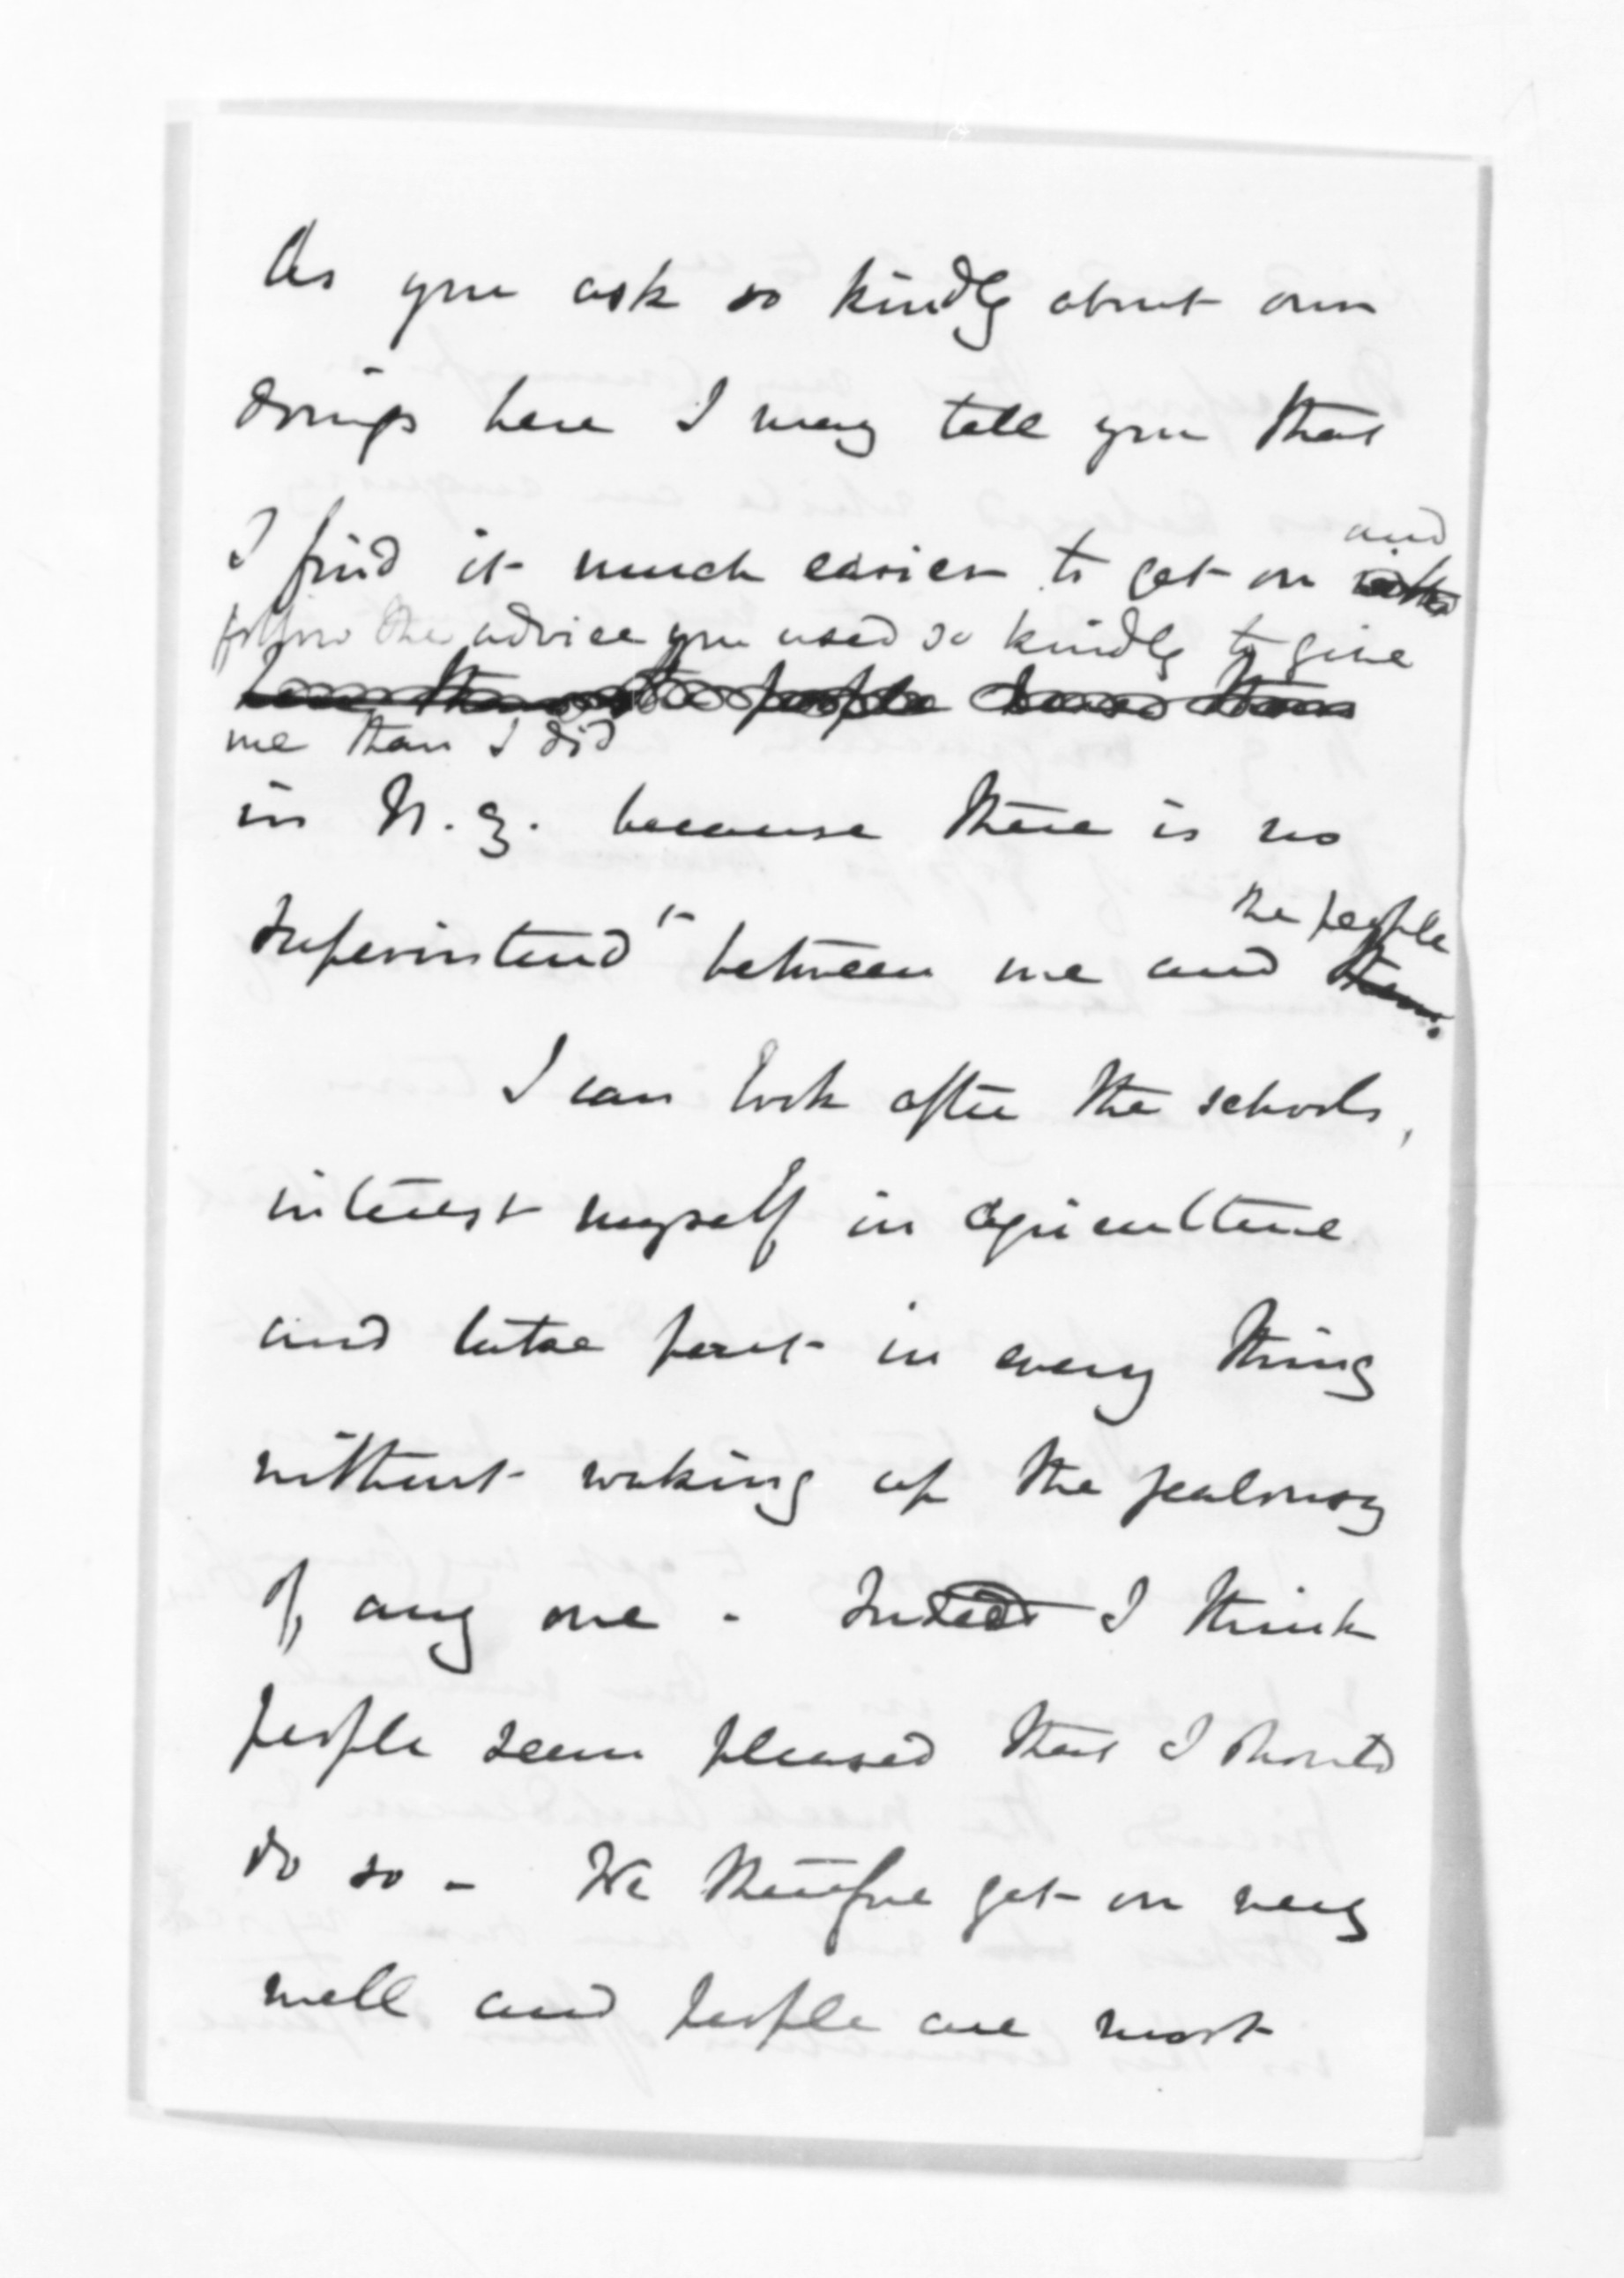 As you ask so kindly about our
doings here I may tell you that
and
I find it much easier to get on with
follow the advice you used so kindly to give
here than the people
me than I did
in N.Z. because there is no
the people
Superintendt between me and them.
I can look after the schools,
interest myself in agriculture
and take part in every thing
without waking up the jealousy
of any one - Indeed I think
people seem pleased that I should
do so - We therefore get on very
well and people are most